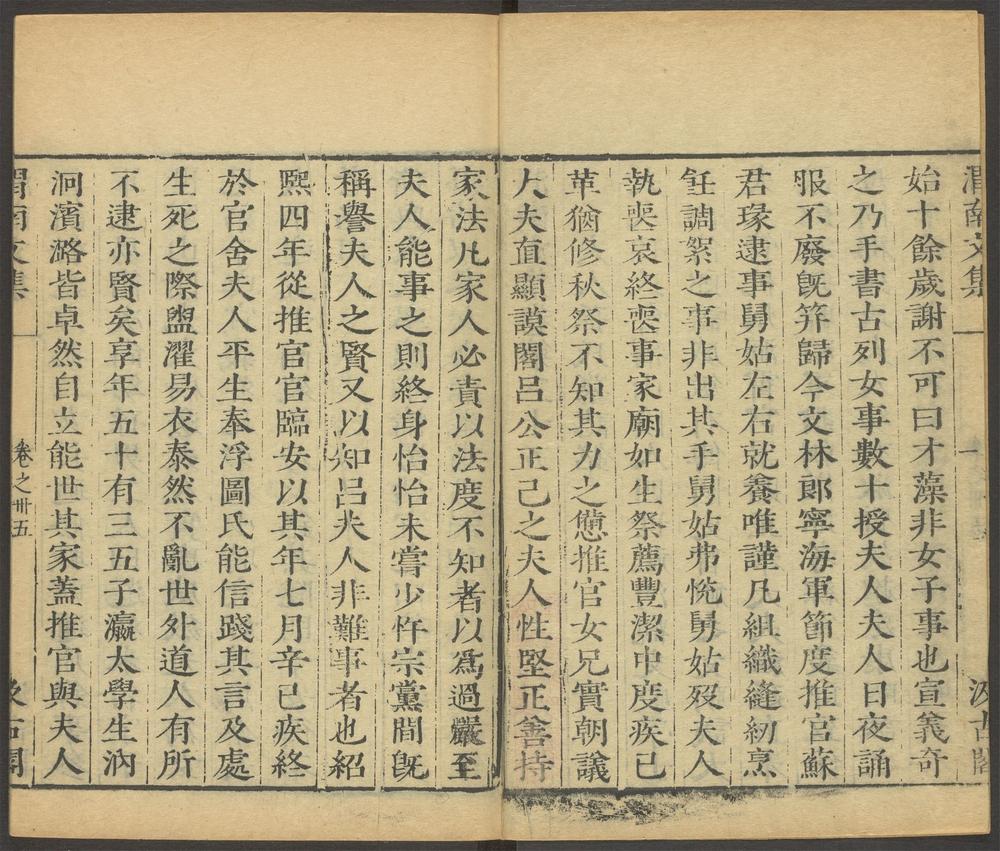 渭南文集 汲古閣
始十餘歲謝不可曰才藻非女子事也宣義奇
之乃手書古列女事數十授夫人夫人日夜誦
服不廢旣筓歸今文林郎寧海軍節度推官蘇
君瑑逮事舅姑左右就養唯謹凡組織縫紉烹
飪調絮之事非出其手舅姑弗悅舅姑歿夫人
執喪哀終喪事家廟如生祭薦豐潔中度疾已
革猶修秋祭不知其力之憊推官女兄實朝議
大夫直顯謨閣呂公正己之夫人性堅正善持
家法凡家人必責以法度不知者以爲過嚴至
夫人能事之則終身怡怡未嘗少忤宗黨間旣
稱譽夫人之賢又以知呂夫人非難事者也紹
熈四年從推官官臨安以其年七月辛巳疾終
於官舍夫人平生奉浮圖氏能信踐其言及處
生死之際盥濯易衣泰然不亂世外道人有所
不逮亦賢矣享年五十有三五子瀛太學生汭
泂濱潞皆卓然自立能世其家蓋推官與夫人
渭南文集 卷之卅五 汲古閣